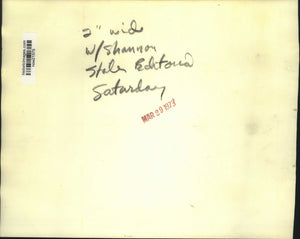 2" wide
w/Shannon
Editorial
Saturday
MAR 29 1973
historicimages.com